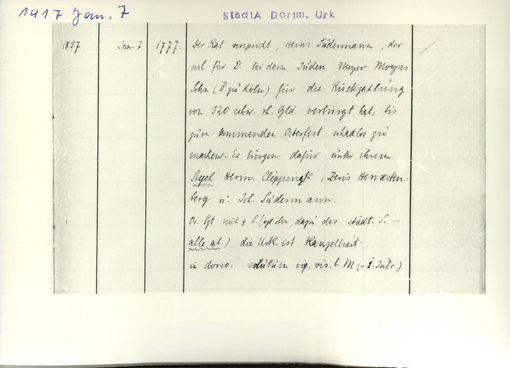 1417 Jan. 7
StadtA Dortm. Urk
1897 Jan. 7 1777. Der Rat verspricht, Herm. Südermann, der
sich für D. bei dem Juden Meyer Moyses
Sohn ( zu Köln) für die Rückzahlung
von 320 schw. rh. Gld verbürgt hat, bis
zum kommenden Osterfest schadlos zu
machen. Es bürgen dafür unter ihrem
Siegel Herm. Cleppingk, Zeris Henxsten-
berg u. Joh. Südermann.
Or. Pgt mit 4 S. ( dazu des städt. S. -
alle ab) die Urk. ist kanzelliert
in dorso. vig. vis. b. M (= 1. Julr.)